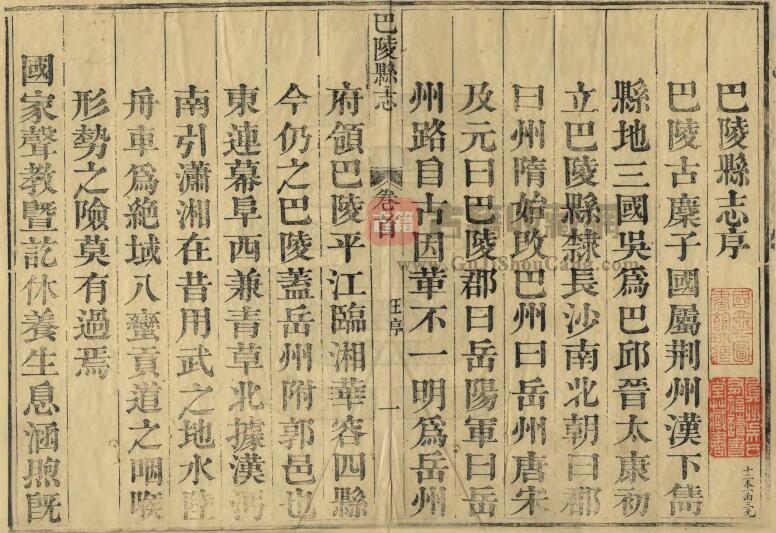 巴陵縣志序
巴陵古麇子國屬荆州漢下雋
縣地三國吳爲巴邱晉太康初
立巴陵縣隸長沙南北朝曰郡
曰州隋始改巴州曰岳州唐宋
及元曰巴陵郡曰岳陽軍曰岳
州路自古因革不一明爲岳州
巴陵縣志
卷首
序
一
府領巴陵平江臨湘華容四縣
今仍之巴陵蓋岳州附郭邑也
東連幕阜西兼青草北據漢沔
南引瀟湘在昔用武之地水陸
舟車爲絶域八蠻貢道之咽喉
形勢之險莫有過焉
國家聲教暨訖休養生息涵煦旣
十二本函三元
古籍
www.GuJiShouCang.com